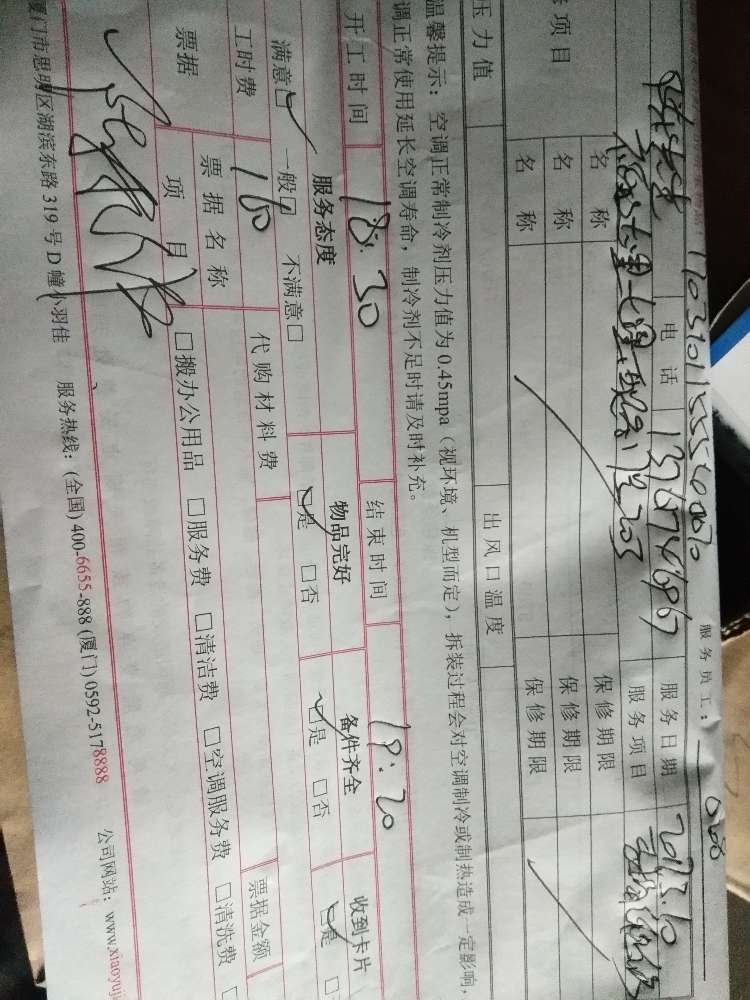 服务员工：068
电话 服务日期
服务项目
名称 保修期限
修项目 名称 保修期限
名称 保修期限
压力值 出风口温度
温馨提示：空调正常制冷剂压力值为0.45mpa（视环境、机型而定），拆装过程会对空调制冷或制热造成一定影响，
调正常使用延长空调寿命，制冷剂不足时请及时补充。
开工时间 18:30 结束时间 19:20
服务态度 物品完好 备件齐全 收到卡片
满意□ 一般□ 不满意□ □是 □否 □是 □否 □是 □
工时费 160 代购材料费
票据 票据名称 票据金额
项目 □搬办公用品 □服务费 □清洁费 □空调服务费 □清洗费 □
厦门市思明区湖滨东路319号D幢小羽佳 服务热线：(全国)400-6655-888 (厦门)0592-5178888 公司网站：www.xiaoyuj